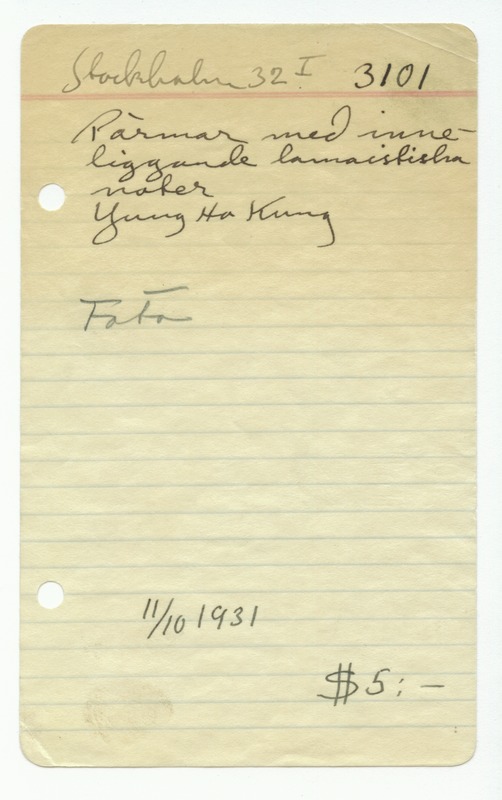 Stockholm 32 I 3101
Pärmar med inne-
liggande lamaistiska
noter
Yung Ho Kung
Foto
11/10 1931
$ 5: –